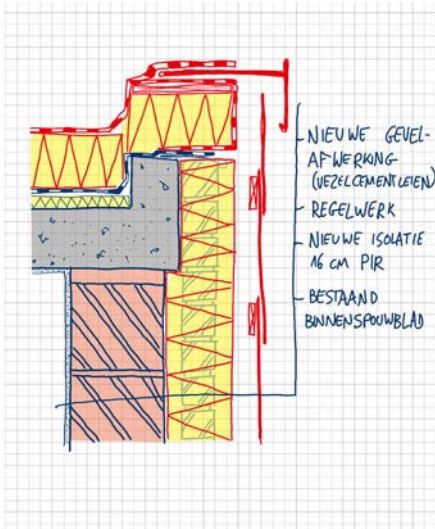 NIEUWE GEVEL-
AFWERKING
(VEZELCEMENTLEIEN)
REGELWERK
NIEUWE ISOLATIE
16 CM PIR
BESTAAND
BINNENSPOUWBLAD